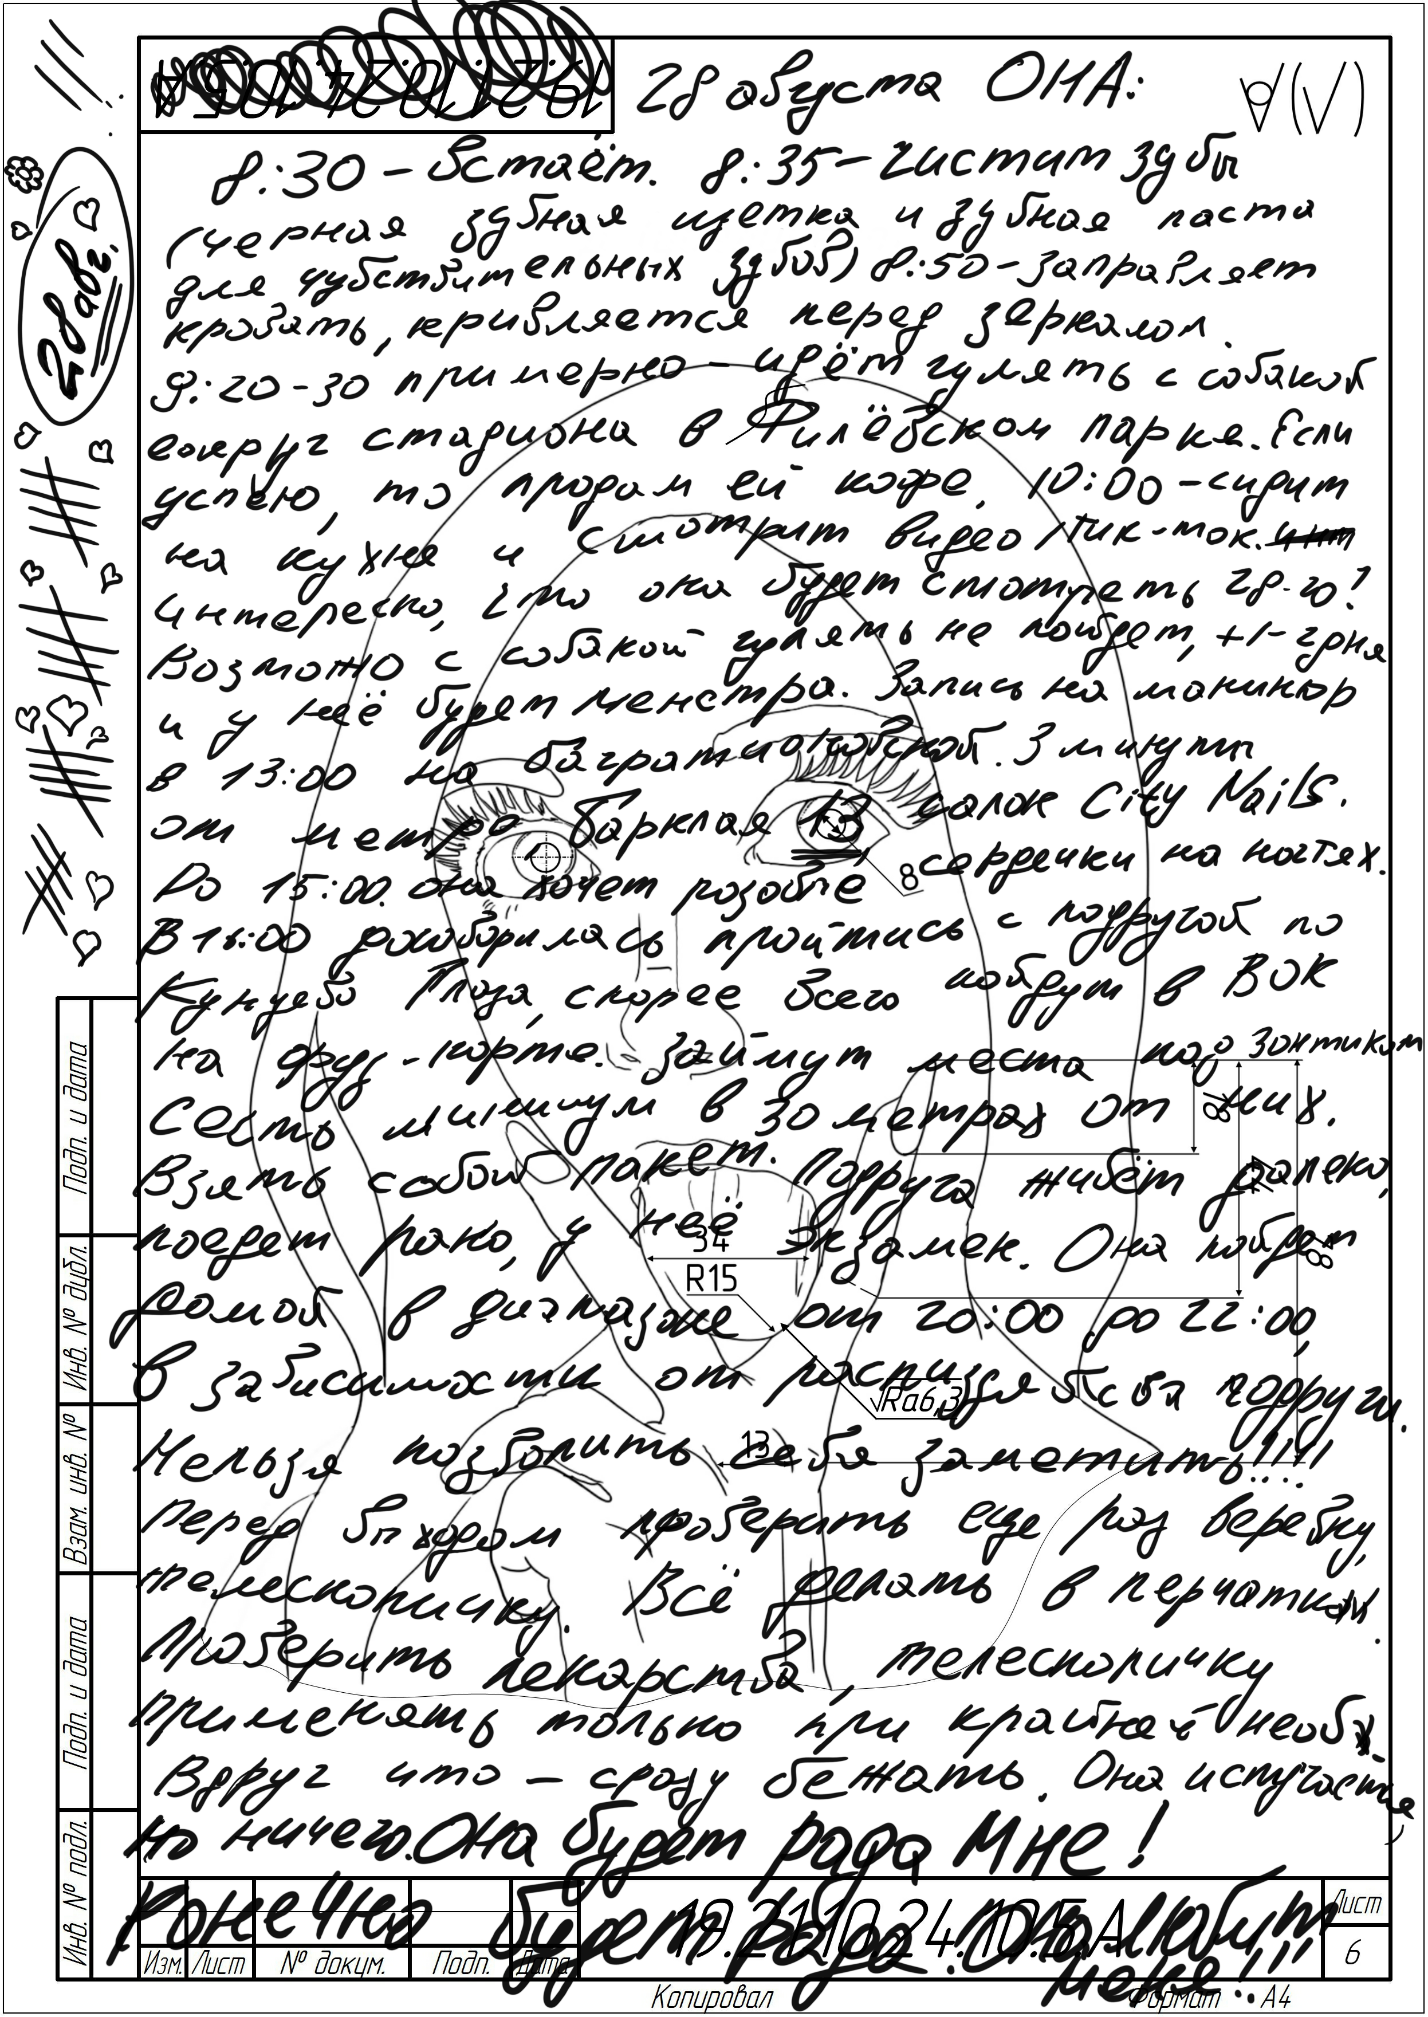 28 августа ОНА:
8:30 – Встаёт. 8:35 – чистит зубы
(черная зубная щетка и зубная паста
для чувствительных зубов) 8:50 – заправляет
кровать, кривляется перед зеркалом.
9:20-30 примерно – идёт гулять с собакой
вокруг стадиона в Филёвском парке. Если
успею, то продам ей кофе. 10:00 – сидит
на кухне и смотрит видео/тик-ток. инт
интересно, что она будет смотреть 28-го!
Возможно с собакой гулять не пойдет, +/- 2 дня
и у неё будет менстра. Запись на маникюр
в 13:00 на багратионовской. 3 минуты
от метро Барклая 13 салон City Nails.
До 15:00. она хочет розовые сердечки на ногтях.
8
В 16:00 договорилась пройтись с подругой по
Кунцево Плаза, скорее всего пойдут в ВОК
на фуд-корте. Займут места под зонтиком
Сесть минимум в 30 метрах от них.
18
Взять с собой пакет. Подруга живёт далеко,
поедет рано, у неё экзамен. Она пойдет
34
84
R15
домой в диапазоне от 20:00 до 22:00,
в зависимости от расписания подруги.
Ra6,3
Нельзя позволить себя заметить!!!!!
13
Перед выходом проверить еще раз веревку,
телескопичку. Всё делать в перчатках.
Проверить лекарства, телескопичку
применять только при крайней необх.
Вдруг что – сразу бежать. Она испугается
но ничего. Она будет рада мне!
Конечно будет рада. Она любит
меня!!!
28авг.
Подп. и дата
Инв. № дубл.
Взам. инв. №
Подп. и дата
Инв. № подл.
Изм. Лист № докум. Подп. Дата
19.21.10.24.10.5.А
Лист
6
Копировал Формат А4